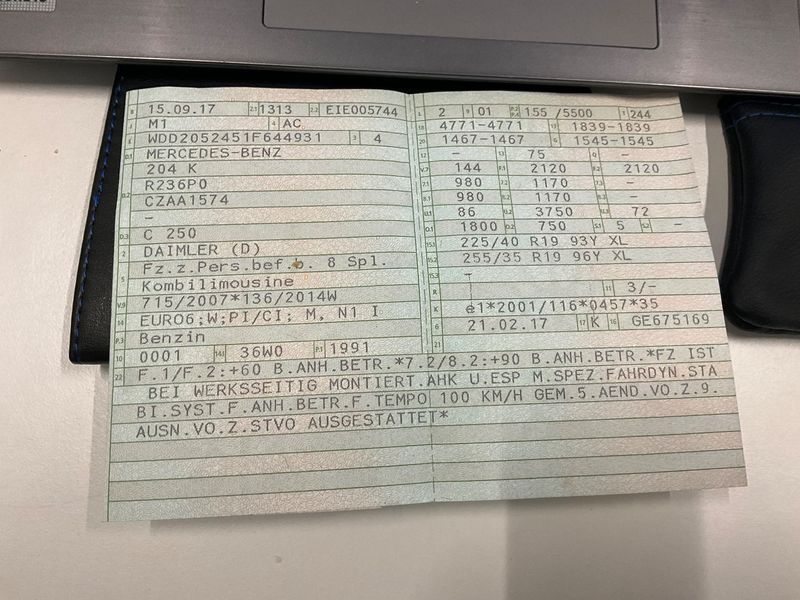 B 15.09.17 2.1 1313 2.2 EIE005744
J M1 4 AC
E WDD2052451F644931 3 4
D.1 MERCEDES-BENZ
204 K
R236P0
D.2 CZAA1574
–
D.3 C 250
2 DAIMLER (D)
5 Fz.z.Pers.bef.b. 8 Spl.
Kombilimousine
V.9 715/2007*136/2014W
14 EURO6;W;PI/CI; M, N1 I
P.3 Benzin
10 0001 14.1 36W0 P.1 1991
L 2 9 01 P.2 P.4 155 /5500 T 244
18 4771-4771 19 1839-1839
20 1467-1467 G 1545-1545
12 – 13 75 Q –
V.7 144 F.1 2120 F.2 2120
7.1 980 7.2 1170 7.3 –
8.1 980 8.2 1170 8.3 –
U.1 86 U.2 3750 U.3 72
O.1 1800 O.2 750 S.1 5 S.2 –
15.1 225/40 R19 93Y XL
15.2 255/35 R19 96Y XL
15.3 –
R 11 3/–
K e1*2001/116*0457*35
6 21.02.17 17 K 16 GE675169
21
22 F.1/F.2:+60 B.ANH.BETR.*7.2/8.2:+90 B.ANH.BETR.*FZ IST
BEI WERKSSEITIG MONTIERT.AHK U.ESP M.SPEZ.FAHRDYN.STA
BI.SYST.F.ANH.BETR.F.TEMPO 100 KM/H GEM.5.AEND.VO.Z.9.
AUSN.VO.Z.STVO AUSGESTATTET*